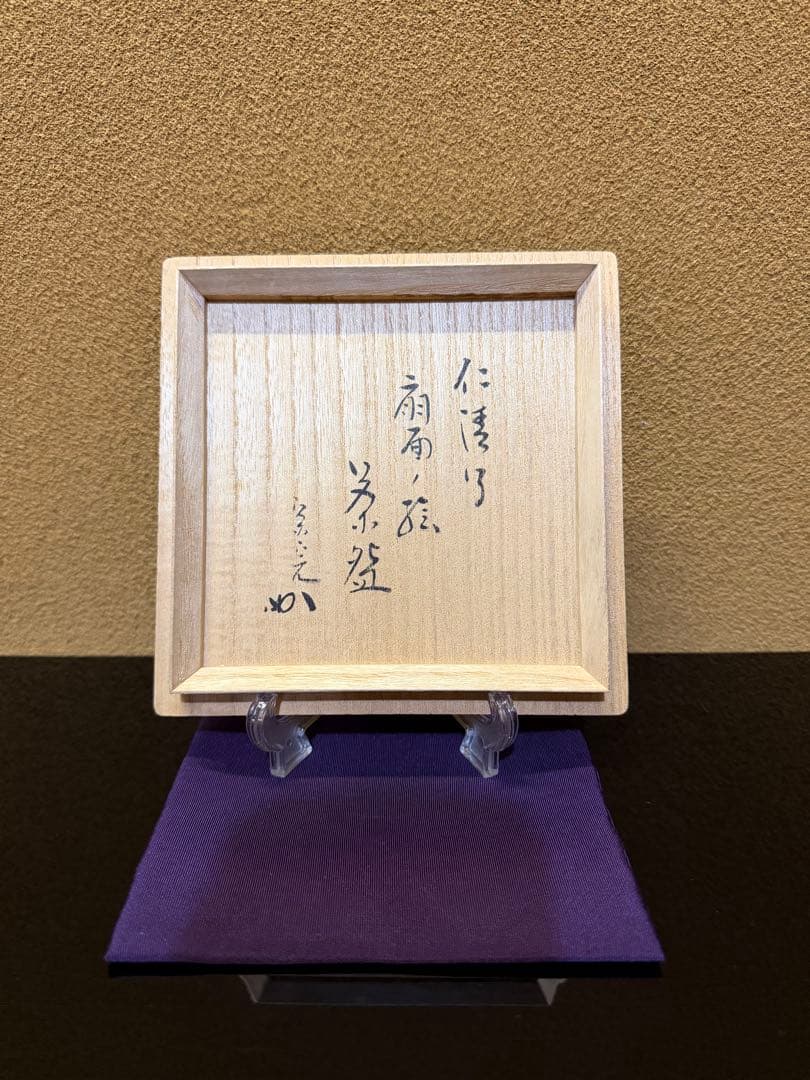 仁清写
扇面ノ絵
茶盌